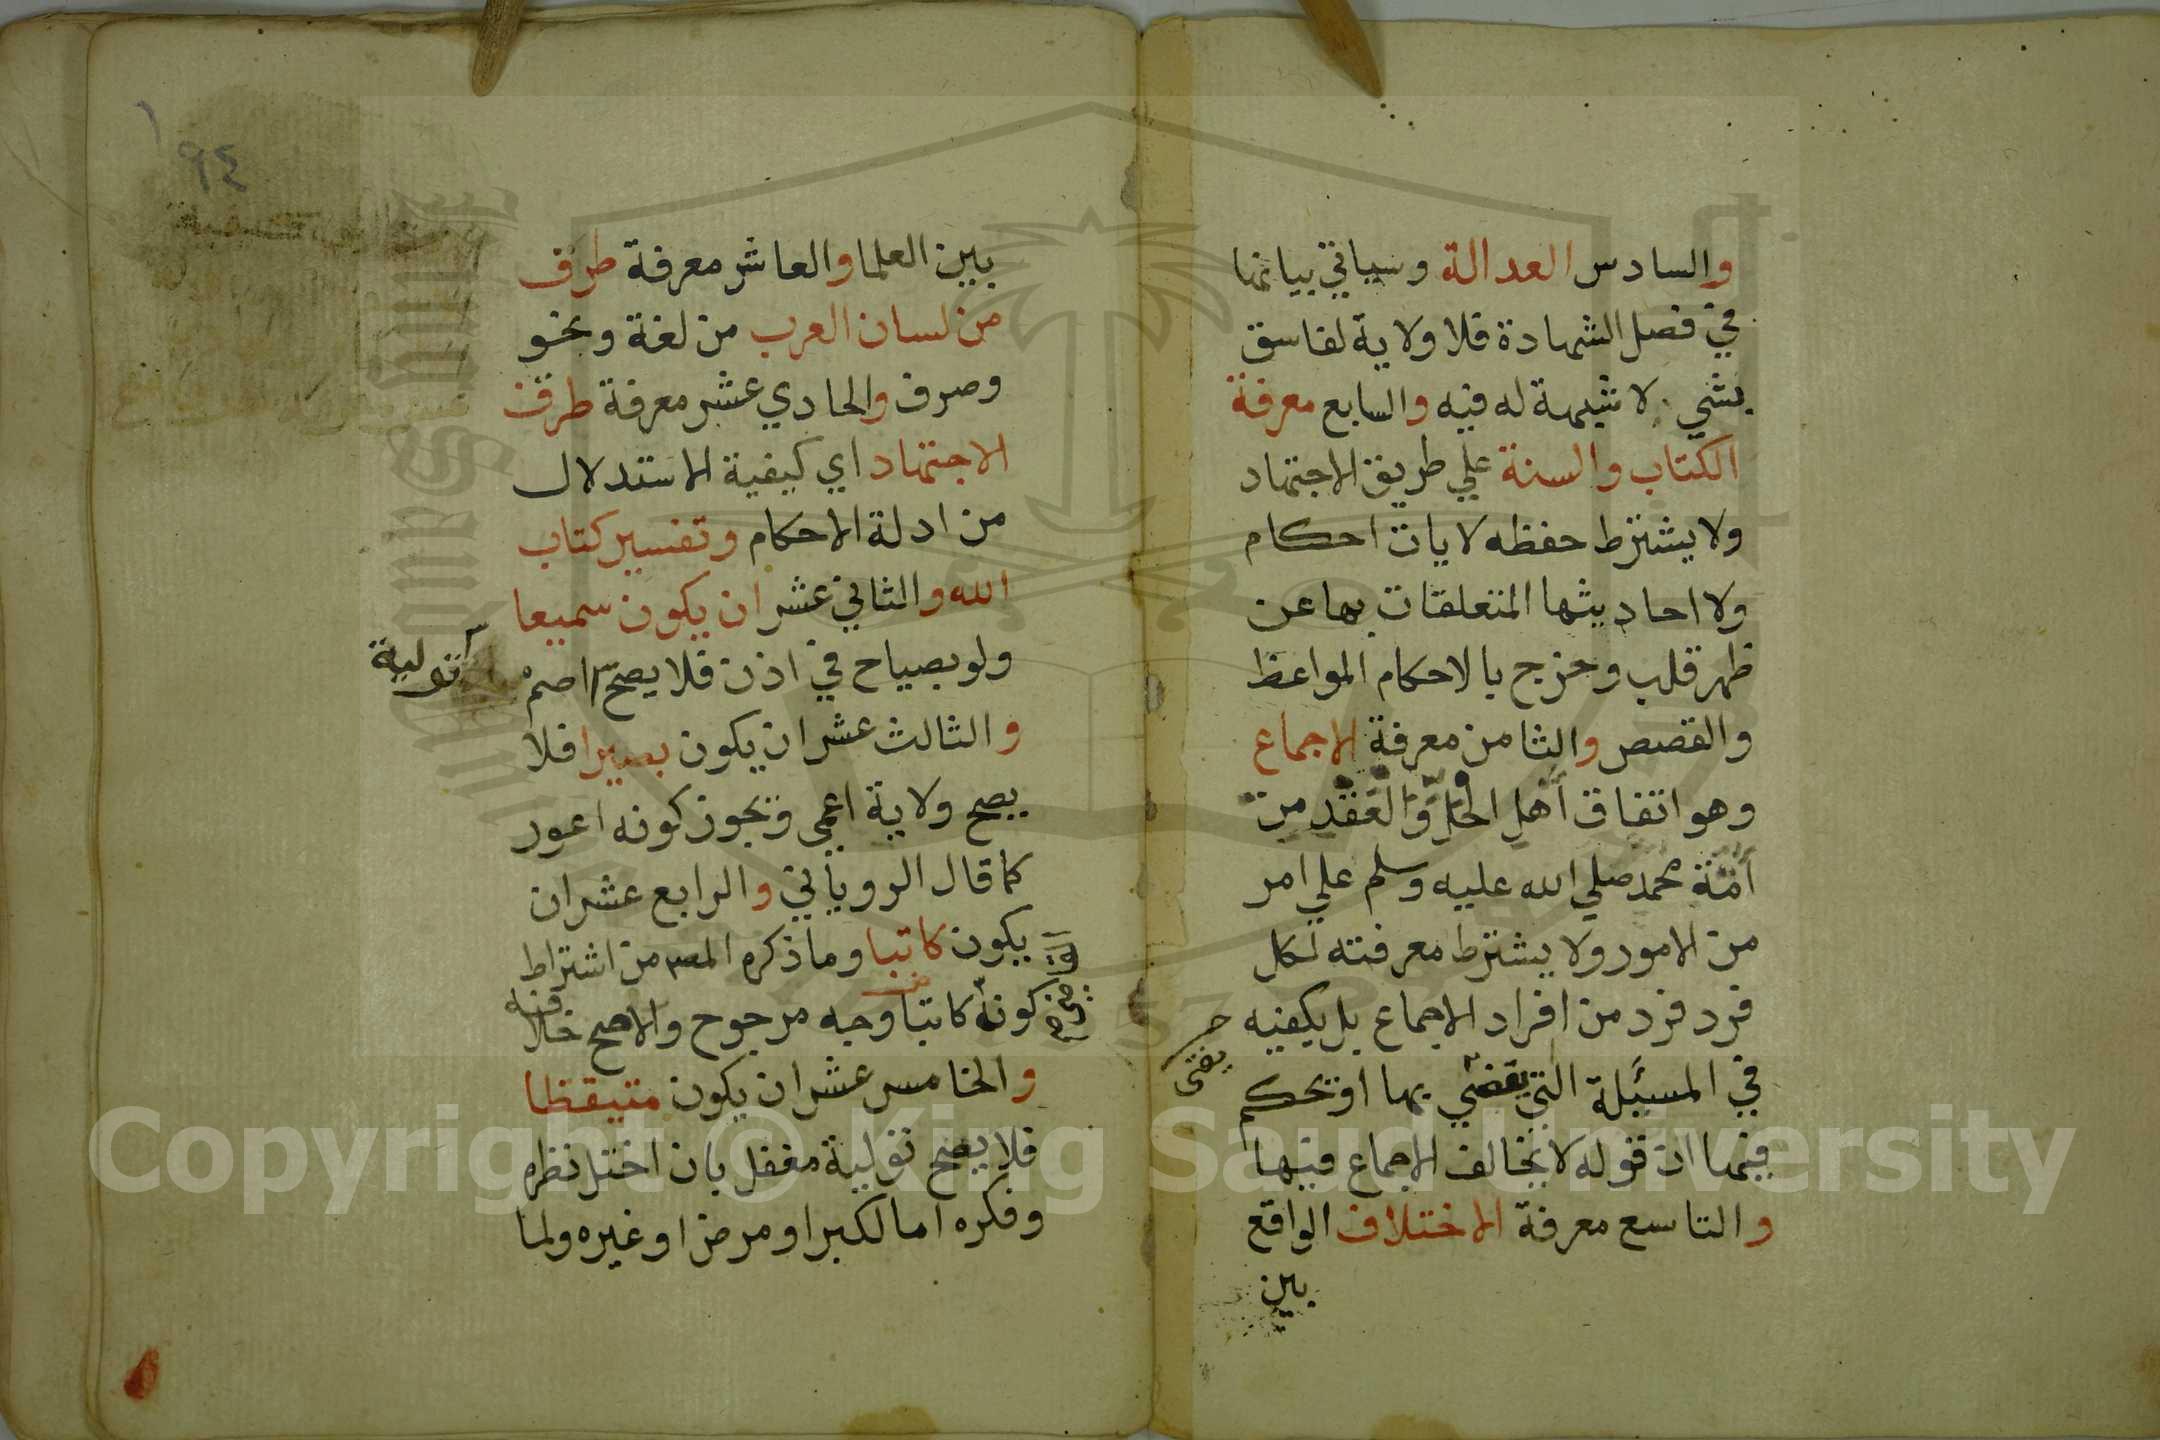 والسادس العدالة وسياتي بيانها
في فصل الشهادة فلا ولاية لفاسق
بشي لا شبهة له فيه والسابع معرفة
الكتاب والسنة علي طريق الاجتهاد
ولا يشترط حفظه لايات احكام
ولا احاديثها المتعلقات بها عن
ظهر قلب وخرج بالاحكام المواعظ
والقصص والثامن معرفة الاجماع
وهو اتفاق أهل الحل والعقد من
أمة محمد صلي الله عليه وسلم علي امر
من الامور ولا يشترط معرفته لكل
فرد فرد من افراد الاجماع بل يكفيه
في المسئلة التي يقضي بها او يحكم
يفتي
فيها ان قوله لا يخالف الاجماع فيها
والتاسع معرفة الاختلاف الواقع
بين
١٩٤
بين العلما والعاشر معرفة طرف
من لسان العرب من لغة ونحو
وصرف والحادي عشر معرفة طرف
الاجتهاد اي كيفية الاستدلال
من ادلة الاحكام وتفسير كتاب
الله والثاني عشر ان يكون سميعا
ولو بصياح في اذن فلا يصح اصم
تولية
والثالث عشر ان يكون بصيرا فلا
يصح ولاية اعمى ويجوز كونه اعور
كما قال الروياني والرابع عشر ان
يكون كاتبا وما ذكره المص من اشتراط
كونه كاتبا وجه مرجوح والاصح خلافه
والخامس عشر ان يكون متيقظا
فلا يصح تولية مغفل بان اختل نظره
وفكره اما لكبر او مرض او غيره ولما
Copyright © King Saud University